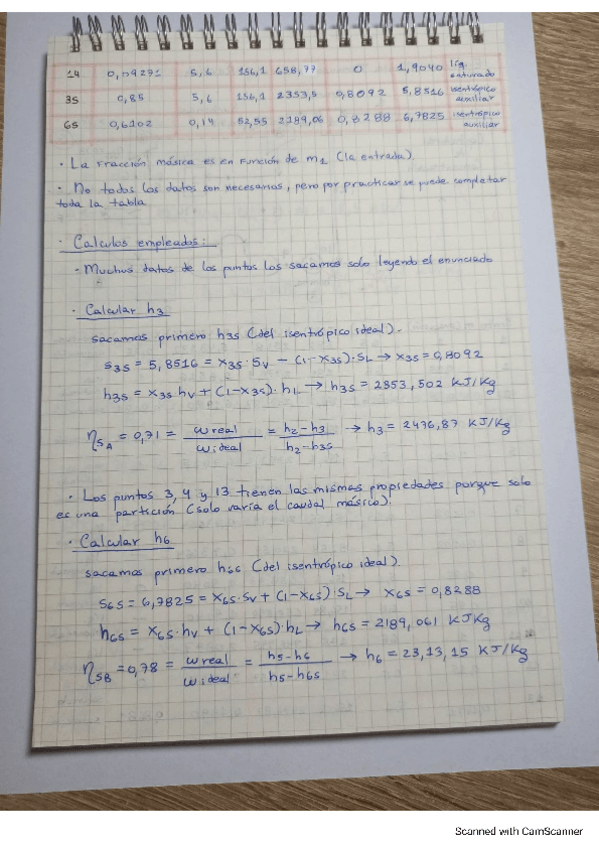 14 0,09291 5,6 156,1 658,77 0 1,9040 líq. saturado
3S 0,85 5,6 156,1 2353,5 0,8092 5,8516 isentrópico auxiliar
6S 0,6102 0,14 52,55 2189,06 0,8288 6,7825 isentrópico auxiliar
· La Fracción másica es en función de m1 (la entrada).
· No todos los datos son necesarios, pero por practicar se puede completar
toda la tabla
· Calculos empleados:
· Muchos datos de los puntos los sacamos solo leyendo el enunciado
· Calcular h3
sacamos primero h3s (del isentrópico ideal).
S3S = 5,8516 = X3S · SV - (1-X3S)·SL → X3S = 0,8092
h3S = X3S hV + (1-X3S)· hL → h3S = 2353,502 KJ/Kg
ηSA = 0,71 = w real / w ideal = h2-h3 / h2-h3S → h3 = 2476,87 KJ/Kg
· Los puntos 3, 4 y 13 tienen las mismas propiedades porque solo
es una partición (solo varía el caudal másico).
· Calcular h6
sacamos primero h6s (del isentrópico ideal).
S6S = 6,7825 = X6S·SV + (1-X6S)·SL → X6S = 0,8288
h6S = X6S·hV + (1-X6S)·hL → h6S = 2189,061 KJ/Kg
ηSB = 0,78 = w real / w ideal = h5-h6 / h5-h6S → h6 = 23,13,15 KJ/Kg
Scanned with CamScanner